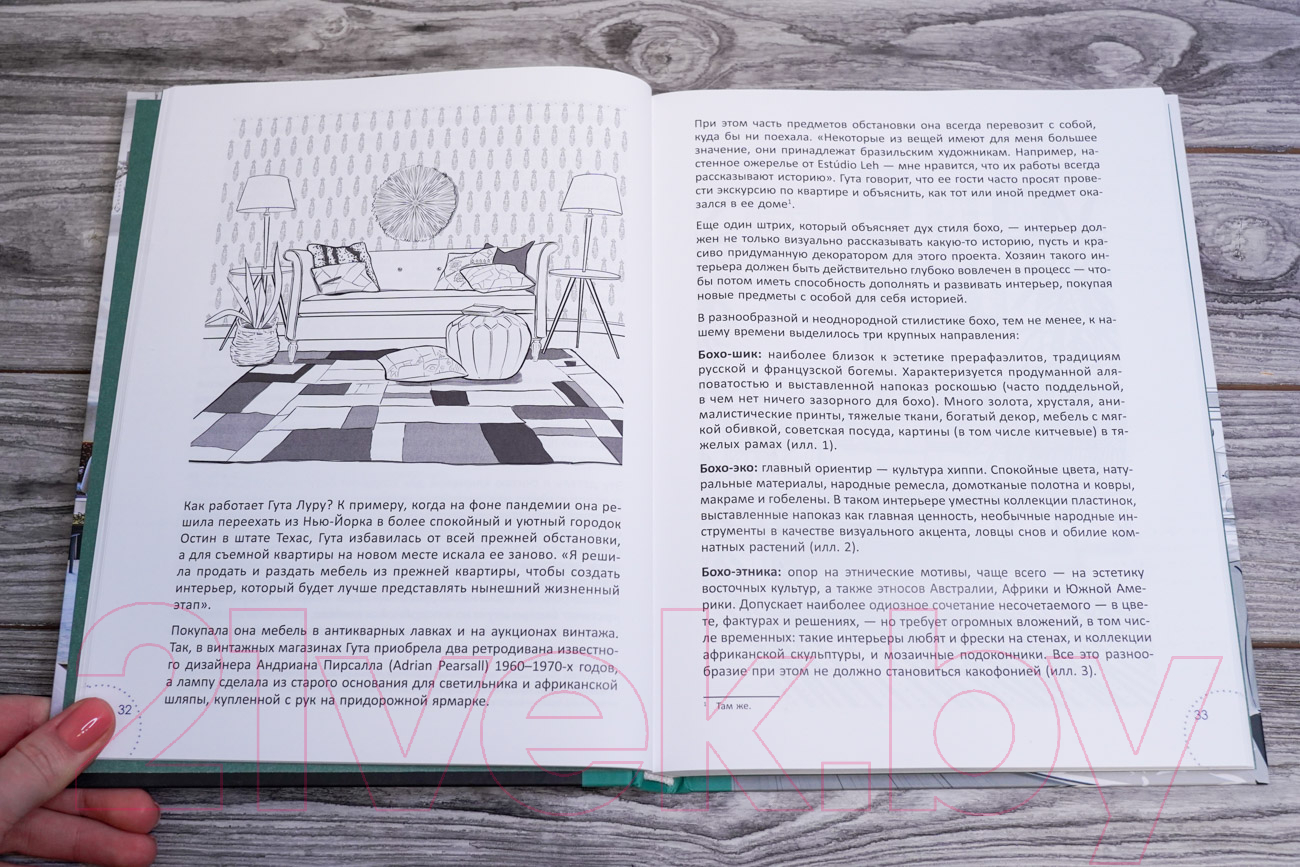 Как работает Гута Луру? К примеру, когда на фоне пандемии она ре-
шила переехать из Нью-Йорка в более спокойный и уютный городок
Остин в штате Техас, Гута избавилась от всей прежней обстановки,
а для съемной квартиры на новом месте искала ее заново. «Я реши-
ла продать и раздать мебель из прежней квартиры, чтобы создать
интерьер, который будет лучше представлять нынешний жизненный
этап».
Покупала она мебель в антикварных лавках и на аукционах винтажа.
Так, в винтажных магазинах Гута приобрела два ретродивана известно-
го дизайнера Андриана Пирсалла (Adrian Pearsall) 1960–1970-х годов,
а лампу сделала из старого основания для светильника и африканской
шляпы, купленной с рук на придорожной ярмарке.
32
При этом часть предметов обстановки она всегда перевозит с собой,
куда бы ни поехала. «Некоторые из вещей имеют для меня большее
значение, они принадлежат бразильским художникам. Например, на-
стенное ожерелье от Estúdio Leh — мне нравится, что их работы всегда
рассказывают историю». Гута говорит, что ее гости часто просят прове-
сти экскурсию по квартире и объяснить, как тот или иной предмет ока-
зался в ее доме¹.
Еще один штрих, который объясняет дух стиля бохо, — интерьер дол-
жен не только визуально рассказывать какую-то историю, пусть и кра-
сиво придуманную декоратором для этого проекта. Хозяин такого ин-
терьера должен быть действительно глубоко вовлечен в процесс — что-
бы потом иметь способность дополнять и развивать интерьер, покупая
новые предметы с особой для себя историей.
В разнообразной и неоднородной стилистике бохо, тем не менее, к на-
шему времени выделилось три крупных направления:
Бохо-шик: наиболее близок к эстетике прерафаэлитов, традициям
русской и французской богемы. Характеризуется продуманной аля-
поватостью и выставленной напоказ роскошью (часто поддельной,
в чем нет ничего зазорного для бохо). Много золота, хрусталя, ани-
малистические принты, тяжелые ткани, богатый декор, мебель с мяг-
кой обивкой, советская посуда, картины (в том числе китчевые) в тя-
желых рамах (илл. 1).
Бохо-эко: главный ориентир — культура хиппи. Спокойные цвета, нату-
ральные материалы, народные ремесла, домотканые полотна и ковры,
макраме и гобелены. В таком интерьере уместны коллекции пластинок,
выставленные напоказ как главная ценность, необычные народные ин-
струменты в качестве визуального акцента, ловцы снов и обилие ком-
натных растений (илл. 2).
Бохо-этника: опор на этнические мотивы, чаще всего — на эстетику
восточных культур, а также этносов Австралии, Африки и Южной Аме-
рики. Допускает наиболее одиозное сочетание несочетаемого — в цве-
те, фактурах и решениях, — но требует огромных вложений, в том чис-
ле временных: такие интерьеры любят и фрески на стенах, и коллекции
африканской скульптуры, и мозаичные подоконники. Все это разно-
образие при этом не должно становиться какофонией (илл. 3).
¹ Там же.
33
21vek.by